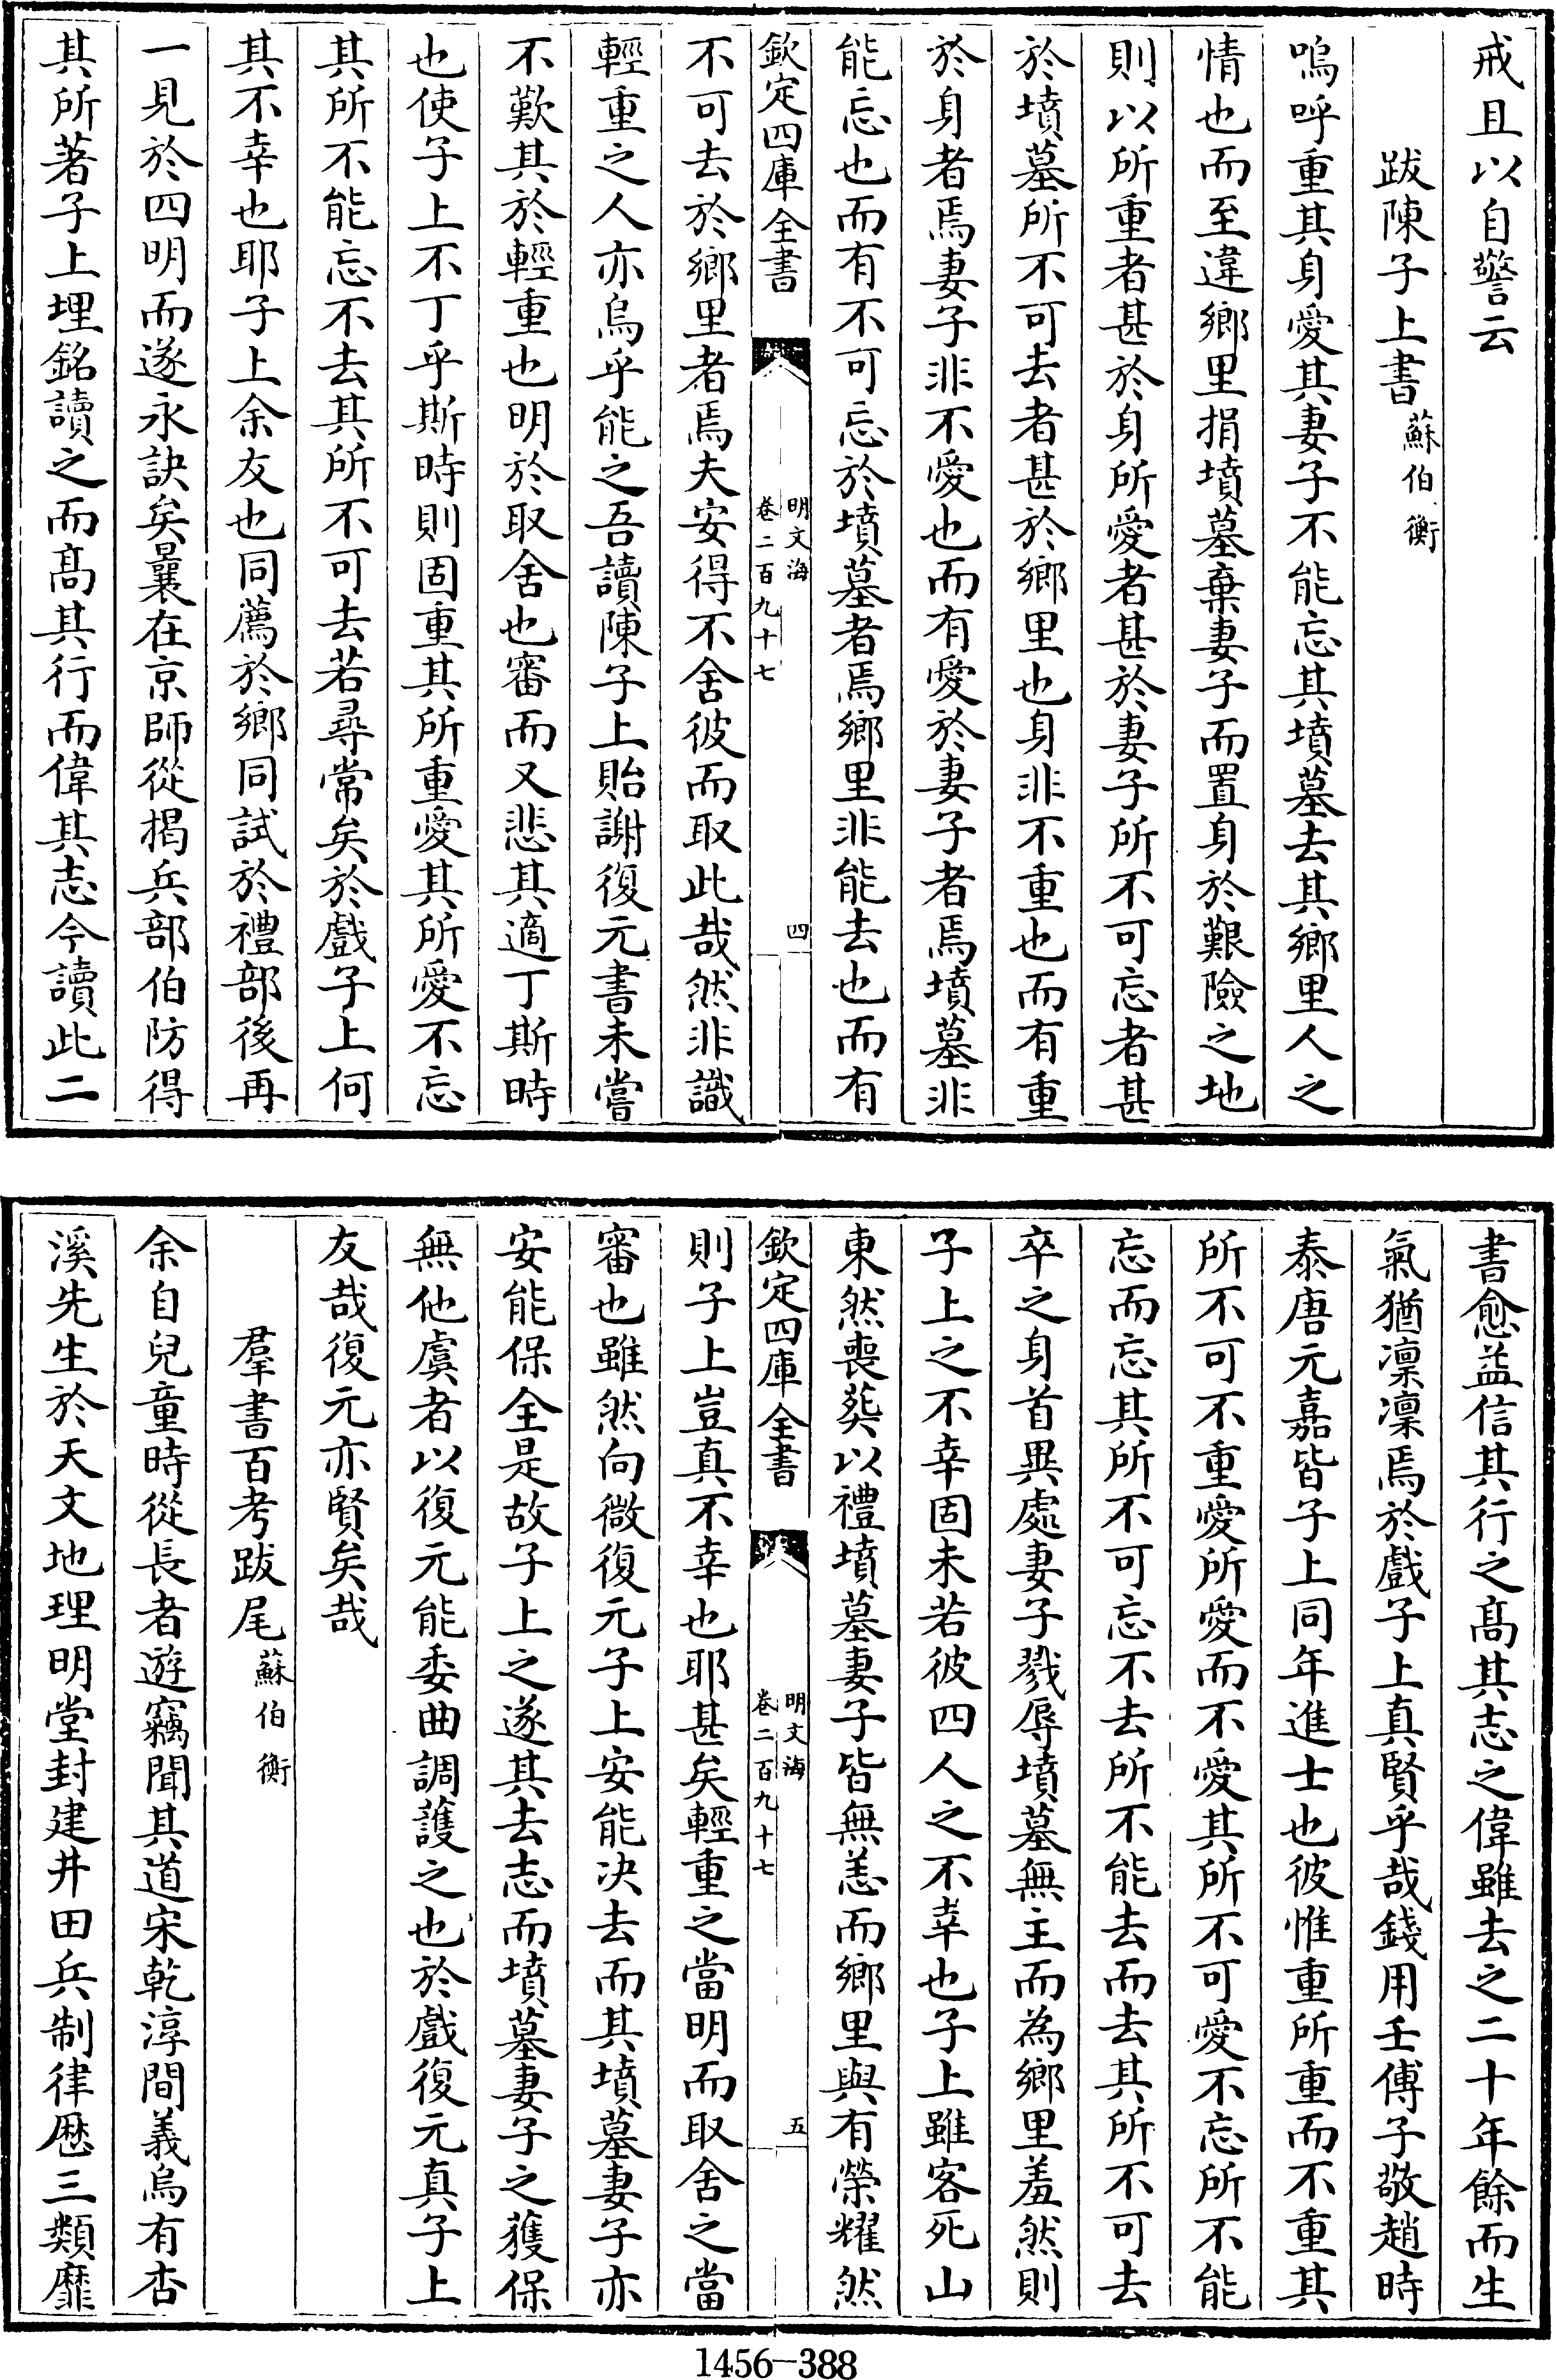 戒且以自警云
跋陳子上書蘇伯衡
嗚呼重其身愛其妻子不能忘其墳墓去其鄉里人之
情也而至違鄉里捐墳墓棄妻子而置身於艱險之地
則以所重者甚於身所愛者甚於妻子所不可忘者甚
於墳墓所不可去者甚於鄉里也身非不重也而有重
於身者焉妻子非不愛也而有愛於妻子者焉墳墓非
能忘也而有不可忘於墳墓者焉鄉里非能去也而有
欽定四庫全書
明文海
卷二百九十七
四
不可去於鄉里者焉夫安得不舍彼而取此哉然非識
輕重之人亦烏乎能之吾讀陳子上貽謝復元書未嘗
不歎其於輕重也明於取舍也審而又悲其適丁斯時
也使子上不丁乎斯時則固重其所重愛其所愛不忘
其所不能忘不去其所不可去若尋常矣於戲子上何
其不幸也耶子上余友也同薦於鄉同試於禮部後再
一見於四明而遂永訣矣曩在京師從揭兵部伯防得
其所著子上埋銘讀之而髙其行而偉其志今讀此二
書愈益信其行之髙其志之偉雖去之二十年餘而生
氣猶凜凜焉於戲子上真賢乎哉錢用壬傅子敬趙時
泰唐元嘉皆子上同年進士也彼惟重所重而不重其
所不可不重愛所愛而不愛其所不可愛不忘所不能
忘而忘其所不可忘不去所不能去而去其所不可去
卒之身首異處妻子戮辱墳墓無主而為鄉里羞然則
子上之不幸固未若彼四人之不幸也子上雖客死山
東然喪葬以禮墳墓妻子皆無恙而鄉里與有榮耀然
欽定四庫全書
明文海
卷二百九十七
五
則子上豈真不幸也耶甚矣輕重之當明而取舍之當
審也雖然向微復元子上安能决去而其墳墓妻子亦
安能保全是故子上之遂其去志而墳墓妻子之獲保
無他虞者以復元能委曲調護之也於戲復元真子上
友哉復元亦賢矣哉
羣書百考跋尾蘇伯衡
余自兒童時從長者遊竊聞其道宋乾淳間義烏有杏
溪先生於天文地理明堂封建井田兵制律厯三類靡
1456-388